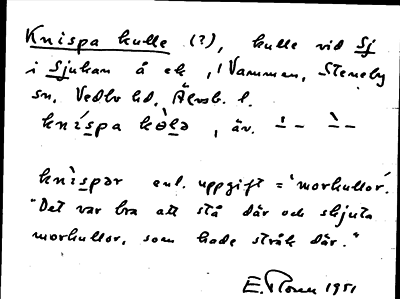 Knispa kulle (?), kulle vid Sj
i Sjuhan å ek, i Vammen, Steneby
sn, Vedbo hd, Älvsb. l.
kníspa kòlə, äv. –́ – –̀ –
knìspər enl. uppgift = 'morkullor'.
"Det var bra att stå där och skjuta
morkullor, som hade stråk där."
1951